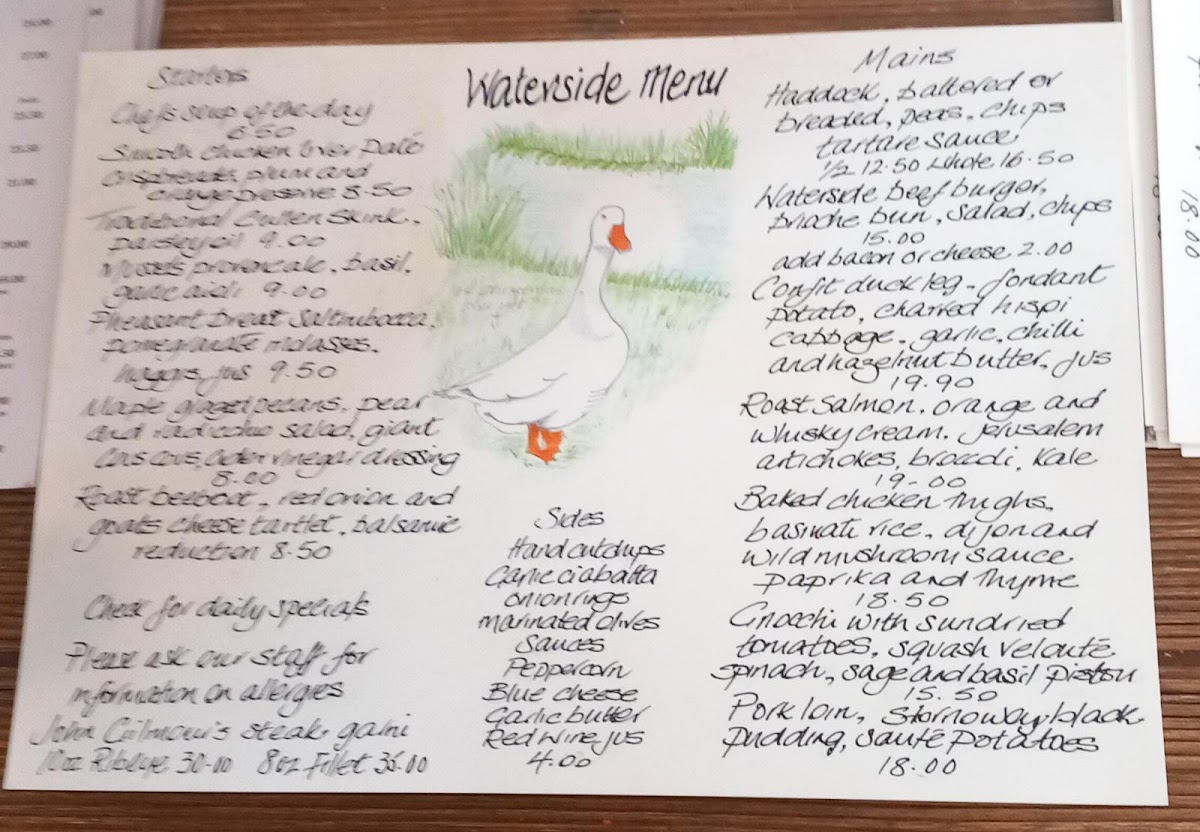 Waterside Menu
Starters
Chefs soup of the day
6.50
Smooth chicken liver Paté
Crispbreads, plum and
orange preserve 8.50
Traditional Cullen Skink,
parsley oil 9.00
Mussels provencale, basil,
garlic aioli 9.00
Pheasant breast Saltimbocca,
pomegranate molasses,
haggis, jus 9.50
Maple glazed pecans, pear
and radicchio salad, giant
cous cous, cider vinegar dressing
8.00
Roast beetroot, red onion and
goats cheese tartlet, balsamic
reduction 8.50
Check for daily specials
Please ask our staff for
information on allergies
John Gilmour's steak, garni
10oz Ribeye 30.00 8oz Fillet 36.00
Sides
Hand cut chips
Garlic ciabatta
onion rings
marinated olives
Sauces
Peppercorn
Blue cheese
Garlic butter
Red Wine jus
4.00
Mains
Haddock, battered or
breaded, peas, chips
tartare sauce
1/2 12.50 Whole 16.50
Waterside beef burger,
brioche bun, salad, chips
15.00
add bacon or cheese 2.00
Confit duck leg, fondant
potato, charred hispi
cabbage, garlic, chilli
and hazelnut butter, jus
19.90
Roast Salmon, orange and
whisky cream, jerusalem
artichokes, broccoli, kale
19-00
Baked chicken thighs,
basmati rice, dijon and
wild mushroom sauce
paprika and thyme
18.50
Gnocchi with sundried
tomatoes, squash velouté
spinach, sage and basil pistou
15.50
Pork loin, Stornoway black
pudding, sauté potatoes
18.00
18.00